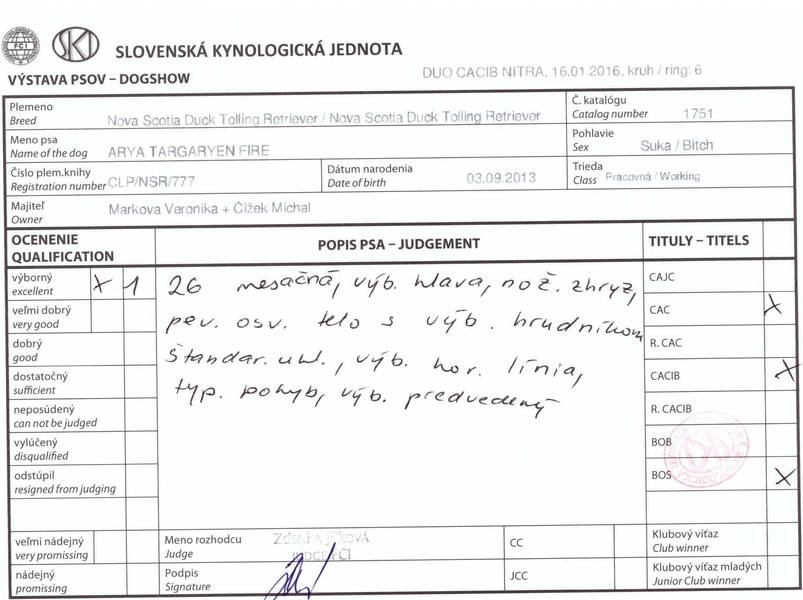 FCI
SKJ
SLOVENSKÁ KYNOLOGICKÁ JEDNOTA
VÝSTAVA PSOV – DOGSHOW
DUO CACIB NITRA, 16.01.2016, kruh / ring: 6
Plemeno
Breed
Nova Scotia Duck Tolling Retriever / Nova Scotia Duck Tolling Retriever
Č. katalógu
Catalog number
1751
Meno psa
Name of the dog
ARYA TARGARYEN FIRE
Pohlavie
Sex
Suka / Bitch
Číslo plem.knihy
Registration number
CLP/NSR/777
Dátum narodenia
Date of birth
03.09.2013
Trieda
Class
Pracovná / Working
Majiteľ
Owner
Markova Veronika + Čížek Michal
OCENENIE
QUALIFICATION
POPIS PSA – JUDGEMENT
TITULY – TITELS
výborný
excellent
X 1
veľmi dobrý
very good
dobrý
good
dostatočný
sufficient
neposúdený
can not be judged
vylúčený
disqualified
odstúpil
resigned from judging
veľmi nádejný
very promissing
nádejný
promissing
26 mesačná, výb. hlava, nož. zhryz,
pev. osv. telo s výb. hrudníkom
štandar. uhl., výb. hor. línia,
typ. pohyb, výb. predvedený
CAJC
CAC X
R. CAC
CACIB X
R. CACIB
BOB
BOS X
Meno rozhodcu
Judge
JUDGE FCI
Podpis
Signature
CC
JCC
Klubový víťaz
Club winner
Klubový víťaz mladých
Junior Club winner